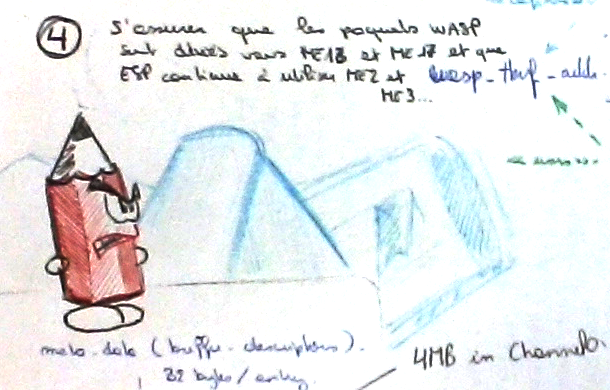 4
S'assurer que les paquets WASP
sont dirigés vers ME1B et ME1B et que
ESP continue à utiliser ME2 et wasp_tbuf_addr.
ME3...
meta-data (buffer-descriptors).
32 bytes/entry.
4MB in Channel0.